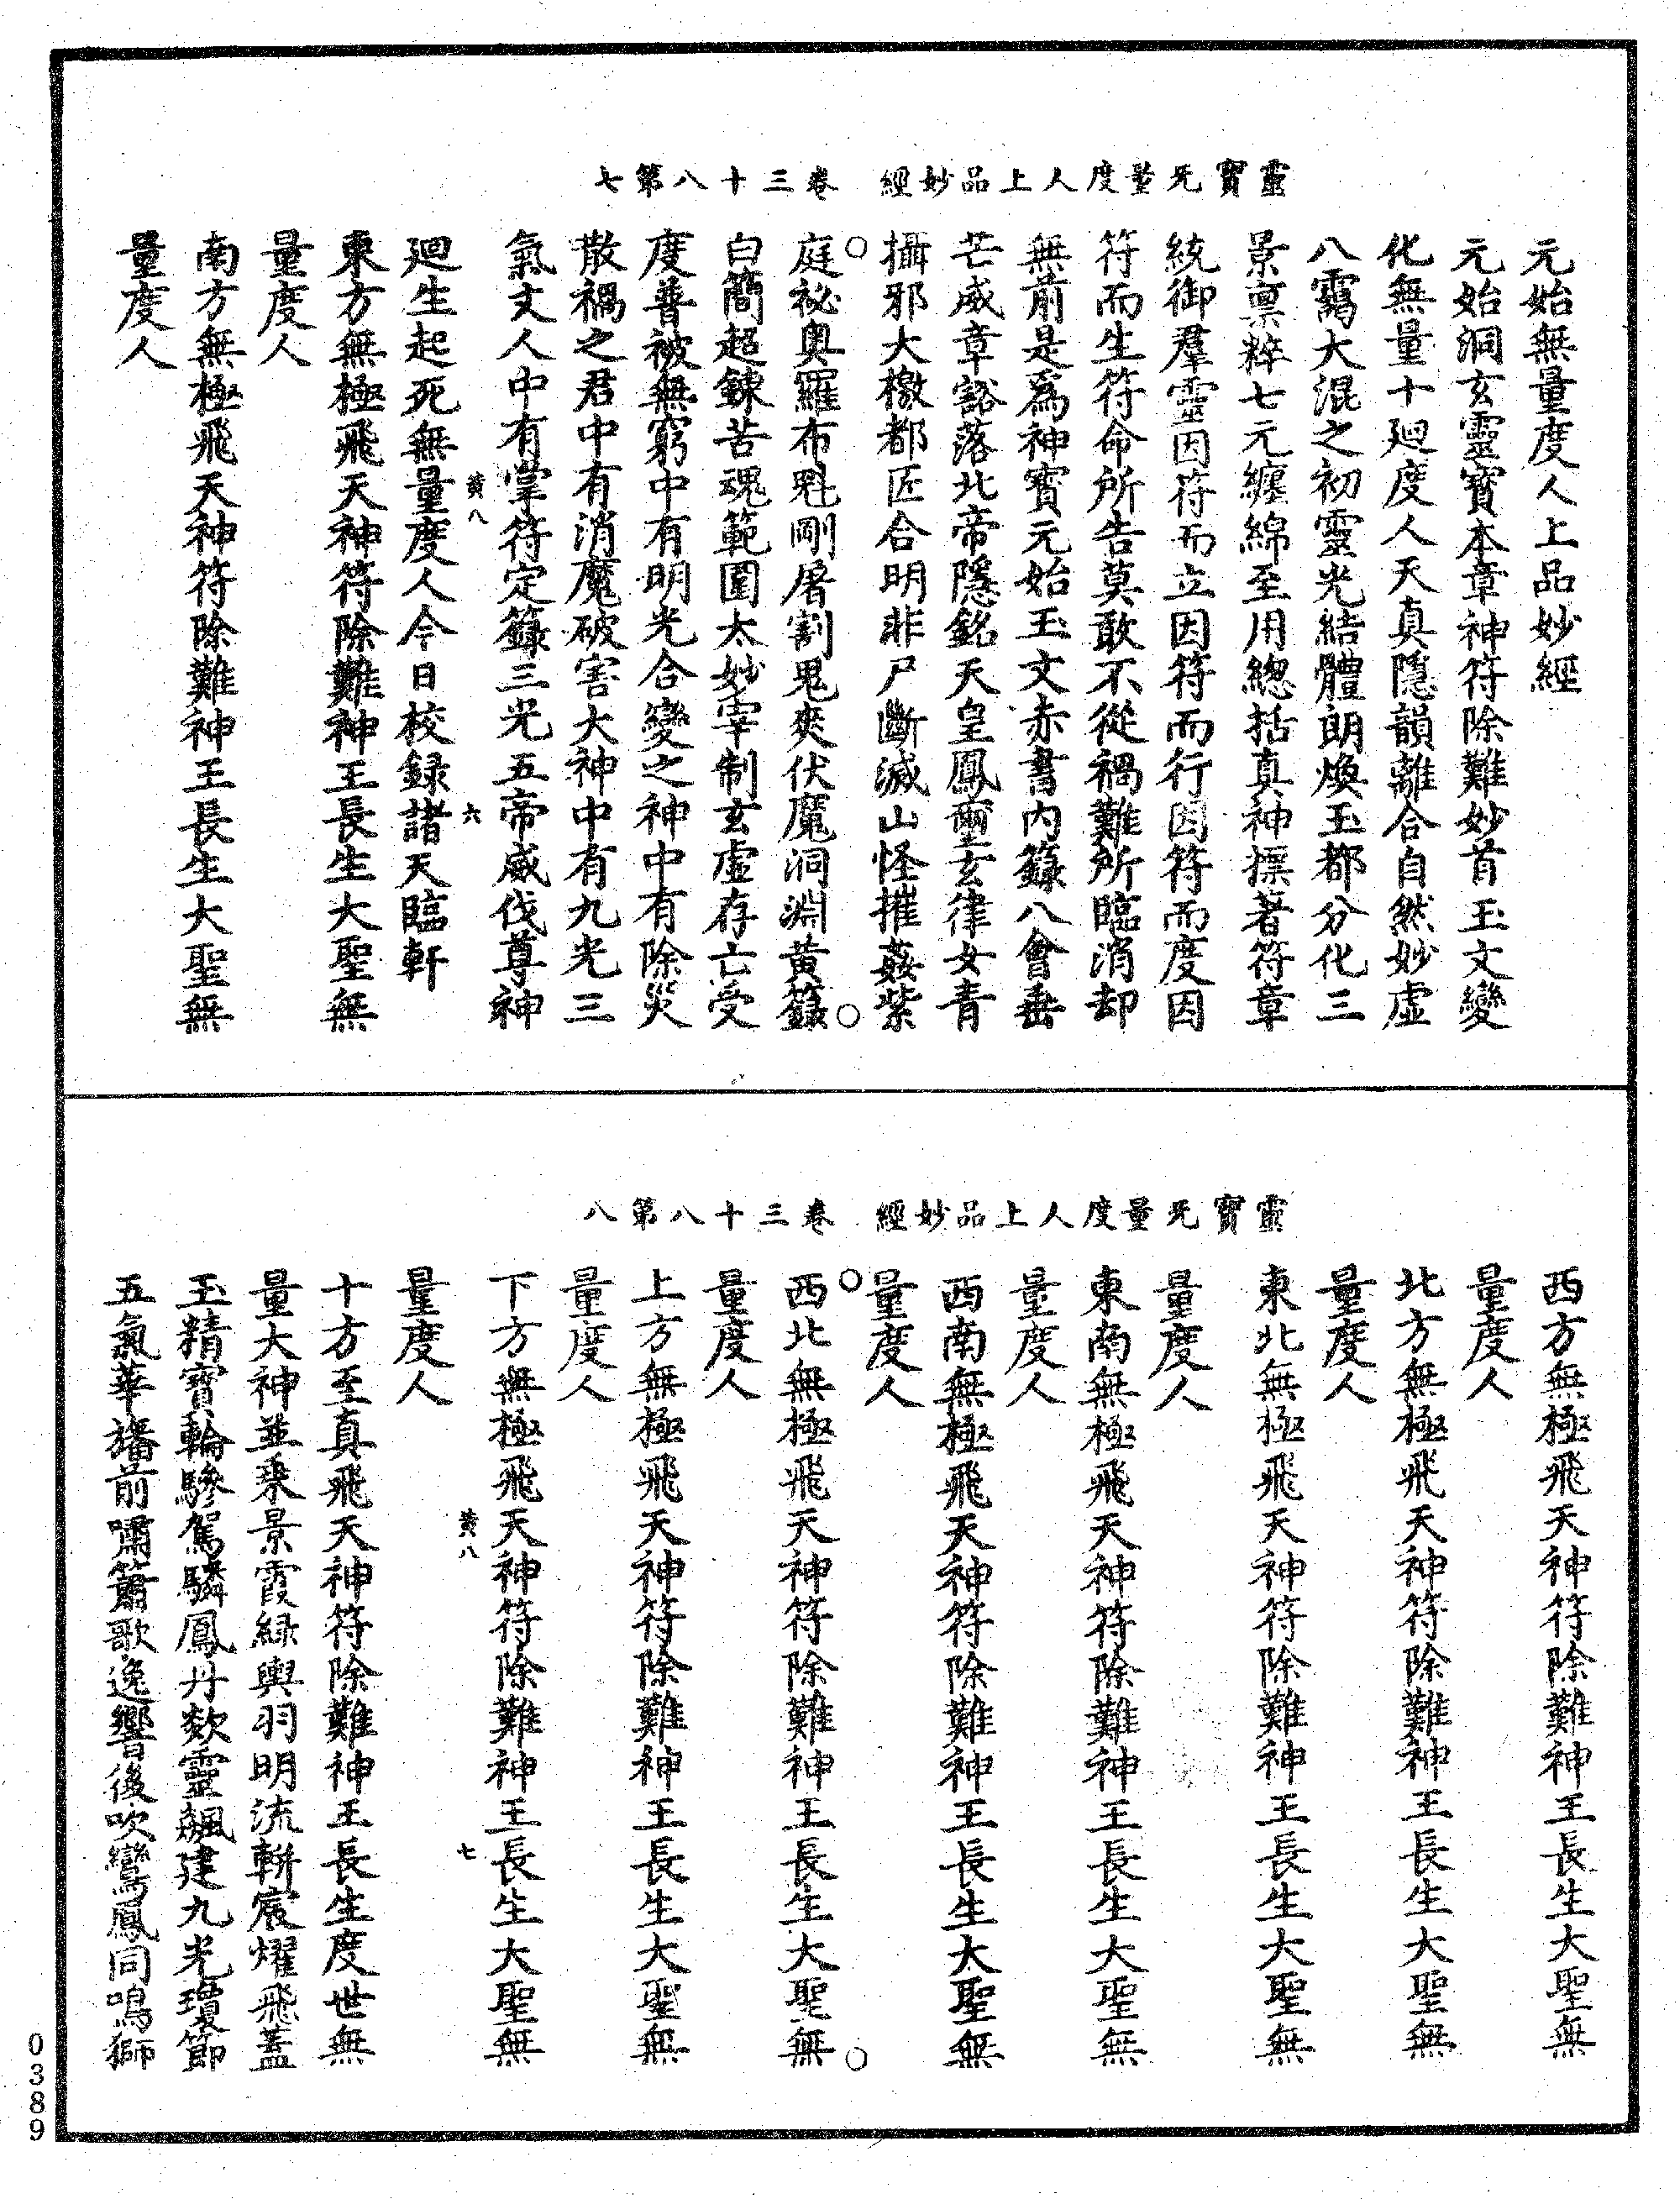 靈寶无量度人上品妙經 卷三十八第七
元始無量度人上品妙經
元始洞玄靈寶本章神符除難妙首玉文變
化無量十廻度人天真隱韻離合自然妙虛
八霭大混之初靈光結體朗煥玉都分化三
景禀粹七元纏綿至用緫括真神摽著符章
統御羣靈因符而立因符而行因符而度因
符而生符命所告莫敢不從禍難所臨消却
無前是爲神寶元始玉文赤書内籙八會垂
芒威章豁落北帝隱銘天皇鳳璽玄律女青
攝邪大檄都匠合明非尸斷滅山怪摧姦紫
庭祕奥羅布魁剛屠割鬼爽伏魔洞淵黄籙
白簡超錬苦魂範圍太妙宰制玄虛存亡受
度普被無窮中有明光合變之神中有除災
散禍之君中有消魔破害大神中有九光三
氣丈人中有掌符定籙三光五帝威伐尊神
黄八 六
廻生起死無量度人今日校録諸天臨軒
東方無極飛天神符除難神王長生大聖無
量度人
南方無極飛天神符除難神王長生大聖無
量度人
靈寶无量度人上品妙經 卷三十八第八
西方無極飛天神符除難神王長生大聖無
量度人
北方無極飛天神符除難神王長生大聖無
量度人
東北無極飛天神符除難神王長生大聖無
量度人
東南無極飛天神符除難神王長生大聖無
量度人
西南無極飛天神符除難神王長生太聖無
量度人
西北無極飛天神符除難神王長生大聖無
量度人
上方無極飛天神符除難神王長生大聖無
量度人
下方無極飛天神符除難神王長生大聖無
黄八 七
量度人
十方至真飛天神符除難神王長生度世無
量大神並乘景霞緑輿羽明流軿宸燿飛蓋
玉精寶輪驂駕驎鳳丹欻靈飆建九光瓊節
五氣華旛前嘯簫歌逸響後吹鸞鳳同鳴獅
0389